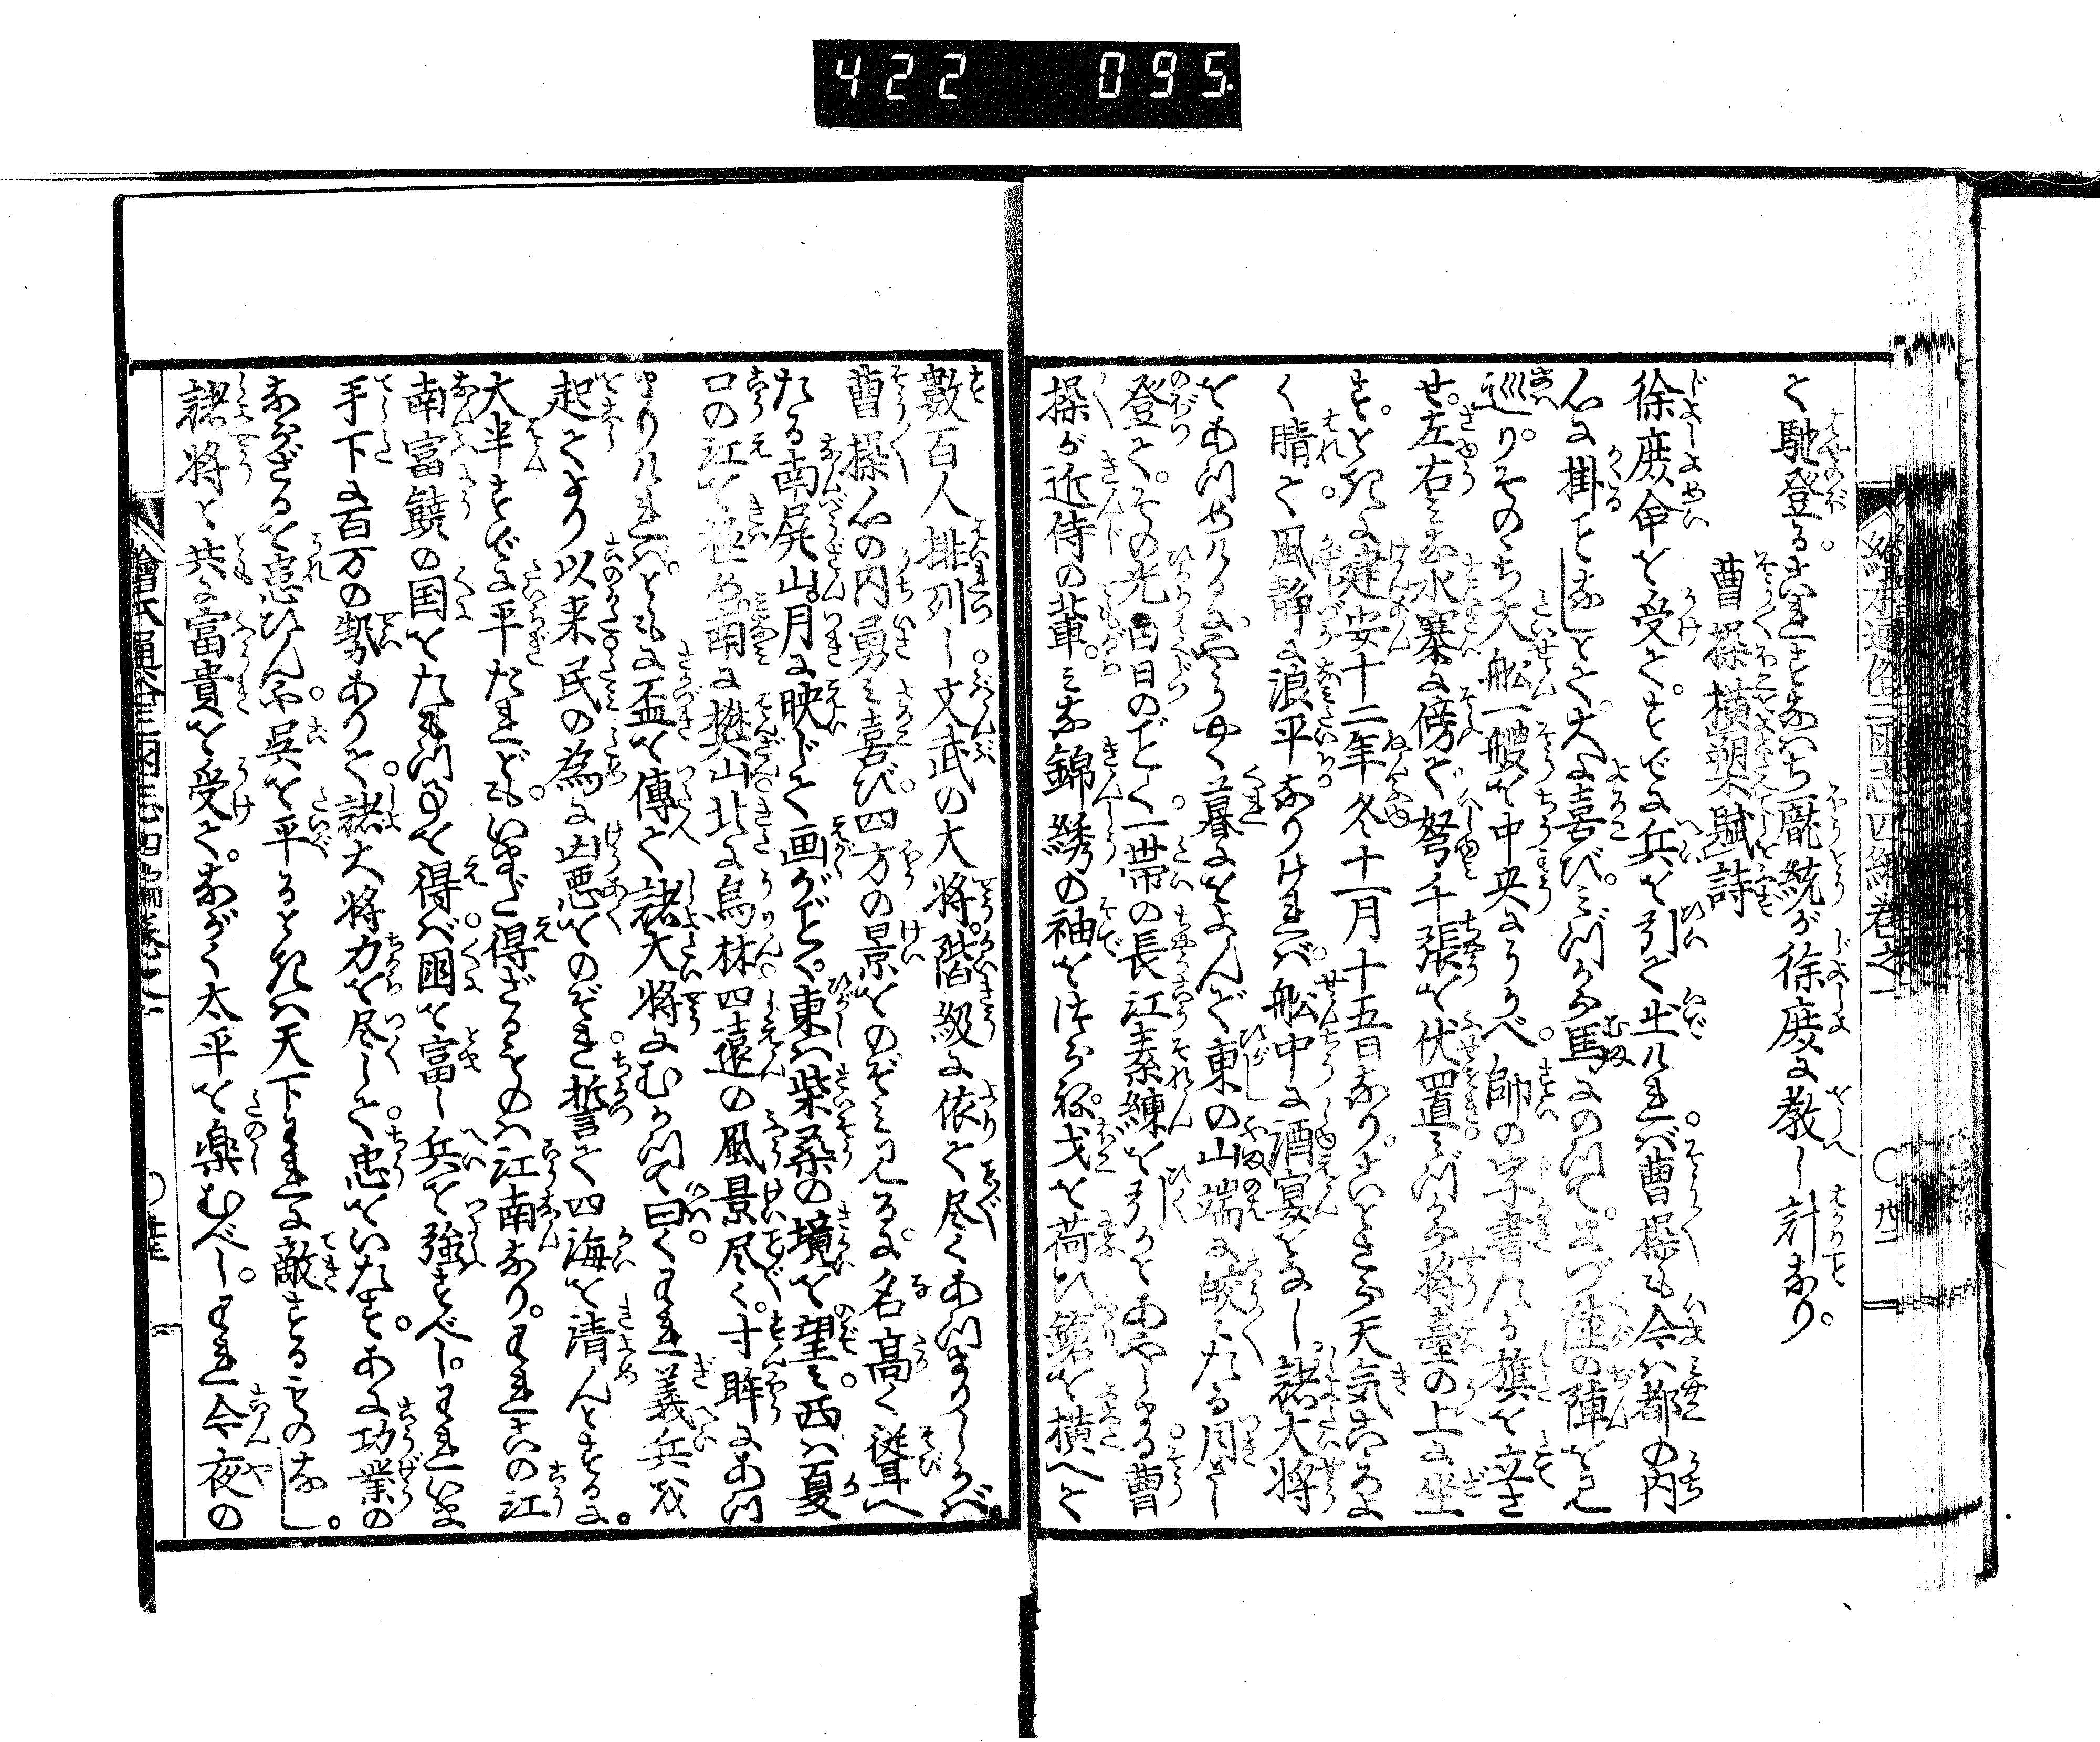 422 095.
て馳登る。これすなはち龐統が徐庶に教し計なり。
曹操横槊賦詩
徐庶命を受て。すでに兵を引て出ければ曹操も今は都の内
心に掛ことなしとて。大に喜び。みづから馬にのつて。まづ陸の陣を見
巡り。そのゝち大舩一艘を中央にうかべ。帥の字書たる旗を立さ
せ。左右みな水寨に傍て。弩千張を伏置みづから将臺の上に坐
す。ときに建安十二年冬十一月十五日なり。このときから天気ことによ
く晴て。風静に浪平なりければ。舩中に酒宴をなし。諸大将
をあつめけるに。やうやく暮にをよんで東の山端に皎々たる月さし
登て。その光白日のごとく。一帯の長江素練を引かとあやしまる曹
操が近侍の輩。みな錦綉の袖をつらね。戈を荷ひ鎗を横へて
數百人排列し文武の大将。階級に依て尽くあつまりしかば。
曹操心の内勇み喜び。四方の景をのぞみ見るに。名高く聳へ
たる南屏山。月に映じて画がごとく。東は柴桑の境を望み。西は夏
口の江を極め。南に樊山北に烏林四遠の風景尽く。寸眸にあつ
まりければ。ともに盃を傳て諸大将にむかつて曰くわれ義兵を
起てより以来民の為に凶悪をのぞき。誓て四海を清んとするに。
大半すでに平たれども。いまだ得ざるものは江南なり。われこの江
南富饒の国をたもつことを得ば。国を富し兵を強すべし。われいま
手下に百万の勢ありて。諸大将力を尽して。忠をいたす。あに功業の
なかざるを患ひんや。呉を平るときは天下われに敵するものなし。
諸将と共に富貴を受て。ながく太平を楽むべし。われ今夜の